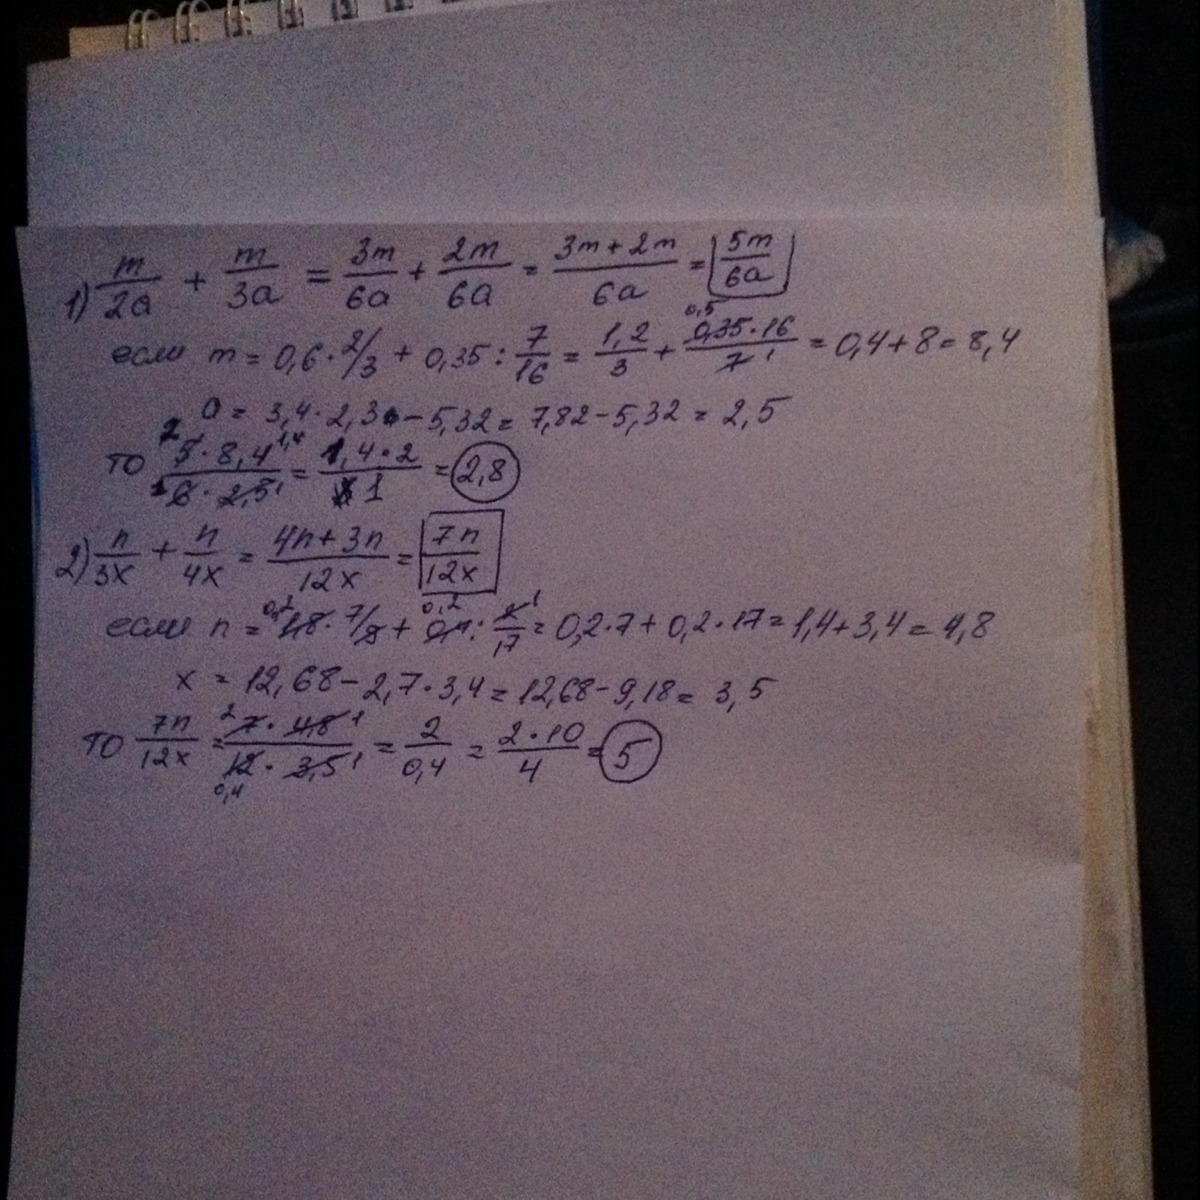 1) m/2a + m/3a = 3m/6a + 2m/6a = (3m + 2m)/6a = 5m/6a
если m = 0,6 · 2/3 + 0,35 : 7/16 = 1,2/3 + 0,5 0,35 · 16/7 1 = 0,4 + 8 = 8,4
a = 3,4 · 2,3 - 5,32 = 7,82 - 5,32 = 2,5
то 5 2 · 8,4 1,4/6 1 · 2,5 1 = 1,4 · 2/1 = 2,8
2) n/3x + n/4x = (4n + 3n)/12x = 7n/12x
если n = 0,2 1,8 · 7/9 + 0,2 0,4 : 2 1/17 = 0,2 · 7 + 0,2 · 17 = 1,4 + 3,4 = 4,8
x = 12,68 - 2,7 · 3,4 = 12,68 - 9,18 = 3,5
то 7n/12x = 2 7 · 4,8 1/12 0,4 · 3,5 1 = 2/0,4 = 2 · 10/4 = 5